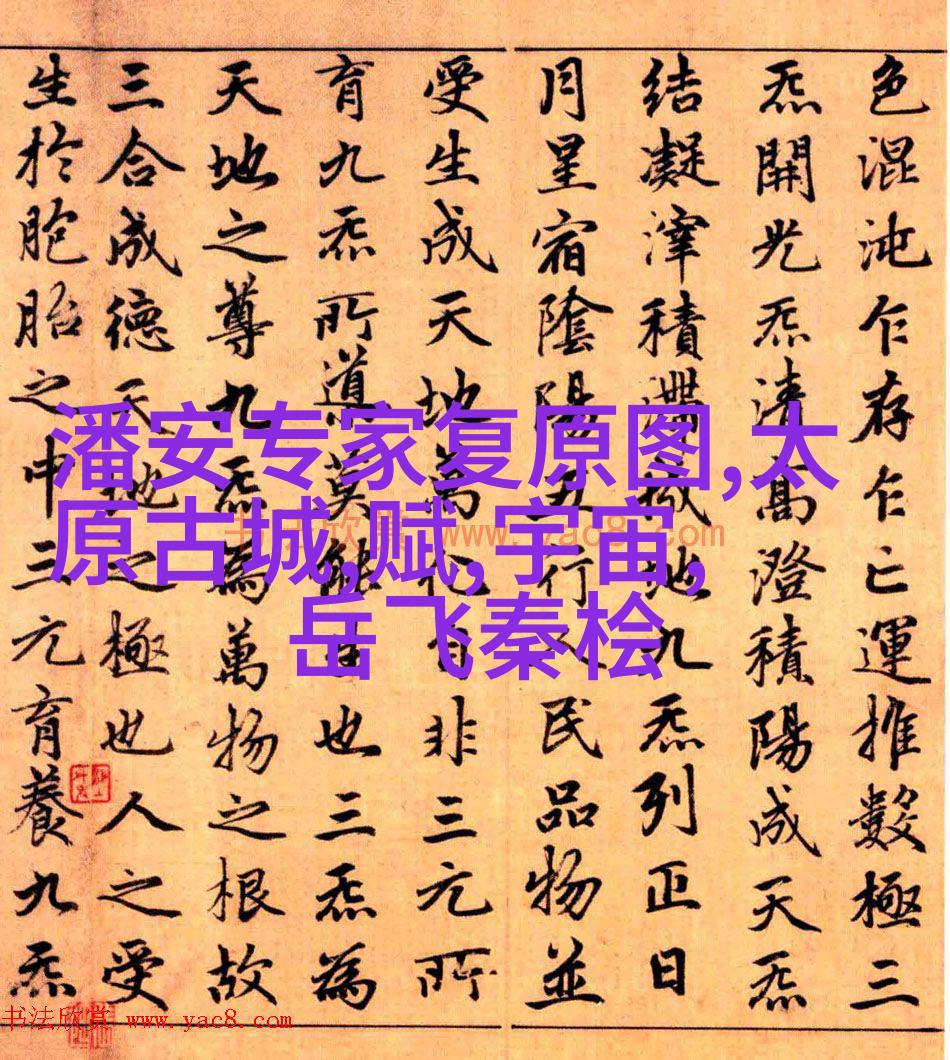 色混沌乍存乍亡運推數極三
炁開光炁清高澄積陽成天炁
結凝滓積滯成地九炁列正日
月星宿陰陽五行人民品物並
受生成天地萬化自非三元所
育九炁所導莫能生也三炁為
天地之尊九炁為萬物之根故
三合成德天地之極也人之受
生於胞胎之中三元育養九炁
潘安专家复原图,太
原古城,赋,宇宙,
岳飞秦桧
书法欣赏 www.yac8.com
书法欣赏 www.yac8.com